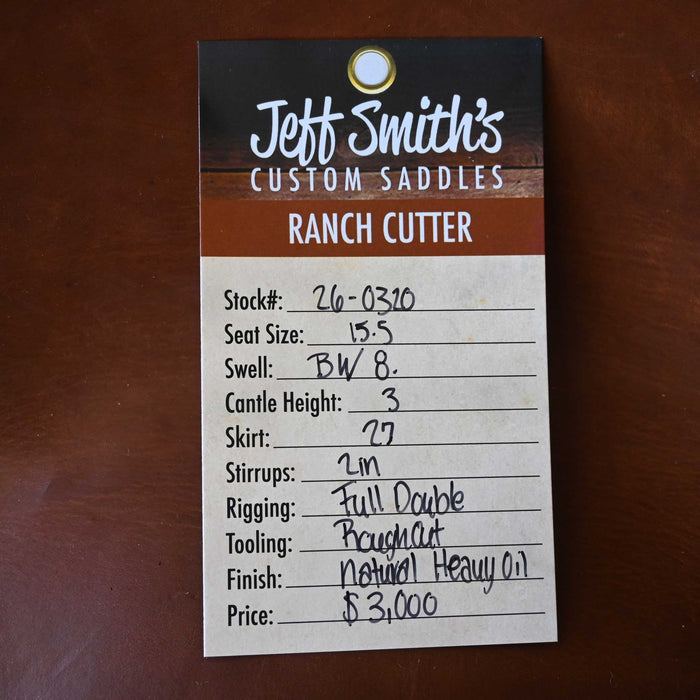 Jeff Smith's
CUSTOM SADDLES
RANCH CUTTER
Stock#: 26-0320
Seat Size: 15.5
Swell: BW 8.
Cantle Height: 3
Skirt: 27
Stirrups: 2in
Rigging: Full Double
Tooling: RoughOut
Finish: Natural Heavy Oil
Price: $3,000